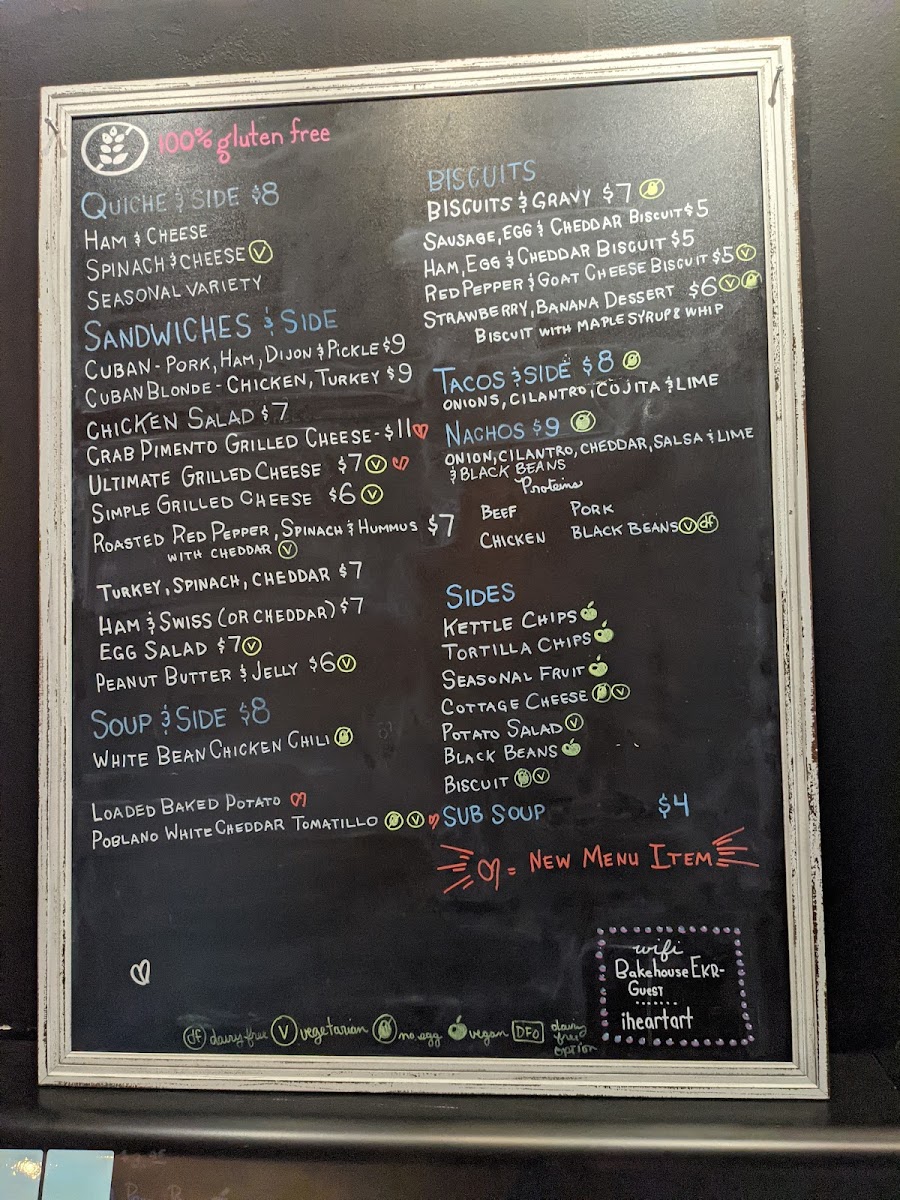 100% gluten free
QUICHE & SIDE $8
HAM & CHEESE
SPINACH & CHEESE V
SEASONAL VARIETY
SANDWICHES & SIDE
CUBAN - PORK, HAM, DIJON & PICKLE $9
CUBAN BLONDE - CHICKEN, TURKEY $9
CHICKEN SALAD $7
CRAB PIMENTO GRILLED CHEESE - $11
ULTIMATE GRILLED CHEESE $7 V
SIMPLE GRILLED CHEESE $6 V
ROASTED RED PEPPER, SPINACH & HUMMUS $7
WITH CHEDDAR V
TURKEY, SPINACH, CHEDDAR $7
HAM & SWISS (OR CHEDDAR) $7
EGG SALAD $7 V
PEANUT BUTTER & JELLY $6 V
SOUP & SIDE $8
WHITE BEAN CHICKEN CHILI
LOADED BAKED POTATO
POBLANO WHITE CHEDDAR TOMATILLO V
BISCUITS
BISCUITS & GRAVY $7
SAUSAGE, EGG & CHEDDAR BISCUIT $5
HAM, EGG & CHEDDAR BISCUIT $5
RED PEPPER & GOAT CHEESE BISCUIT $5 V
STRAWBERRY, BANANA DESSERT $6 V
BISCUIT WITH MAPLE SYRUP & WHIP
TACOS & SIDE $8
ONIONS, CILANTRO, COJITA & LIME
NACHOS $9
ONION, CILANTRO, CHEDDAR, SALSA & LIME
& BLACK BEANS
Proteins
BEEF PORK
CHICKEN BLACK BEANS V df
SIDES
KETTLE CHIPS
TORTILLA CHIPS
SEASONAL FRUIT
COTTAGE CHEESE V
POTATO SALAD V
BLACK BEANS
BISCUIT V
SUB SOUP $4
= NEW MENU ITEM
wifi
Bakehouse EKR-
GUEST
iheartart
df dairy free V vegetarian no egg vegan DFO dairy
free
option